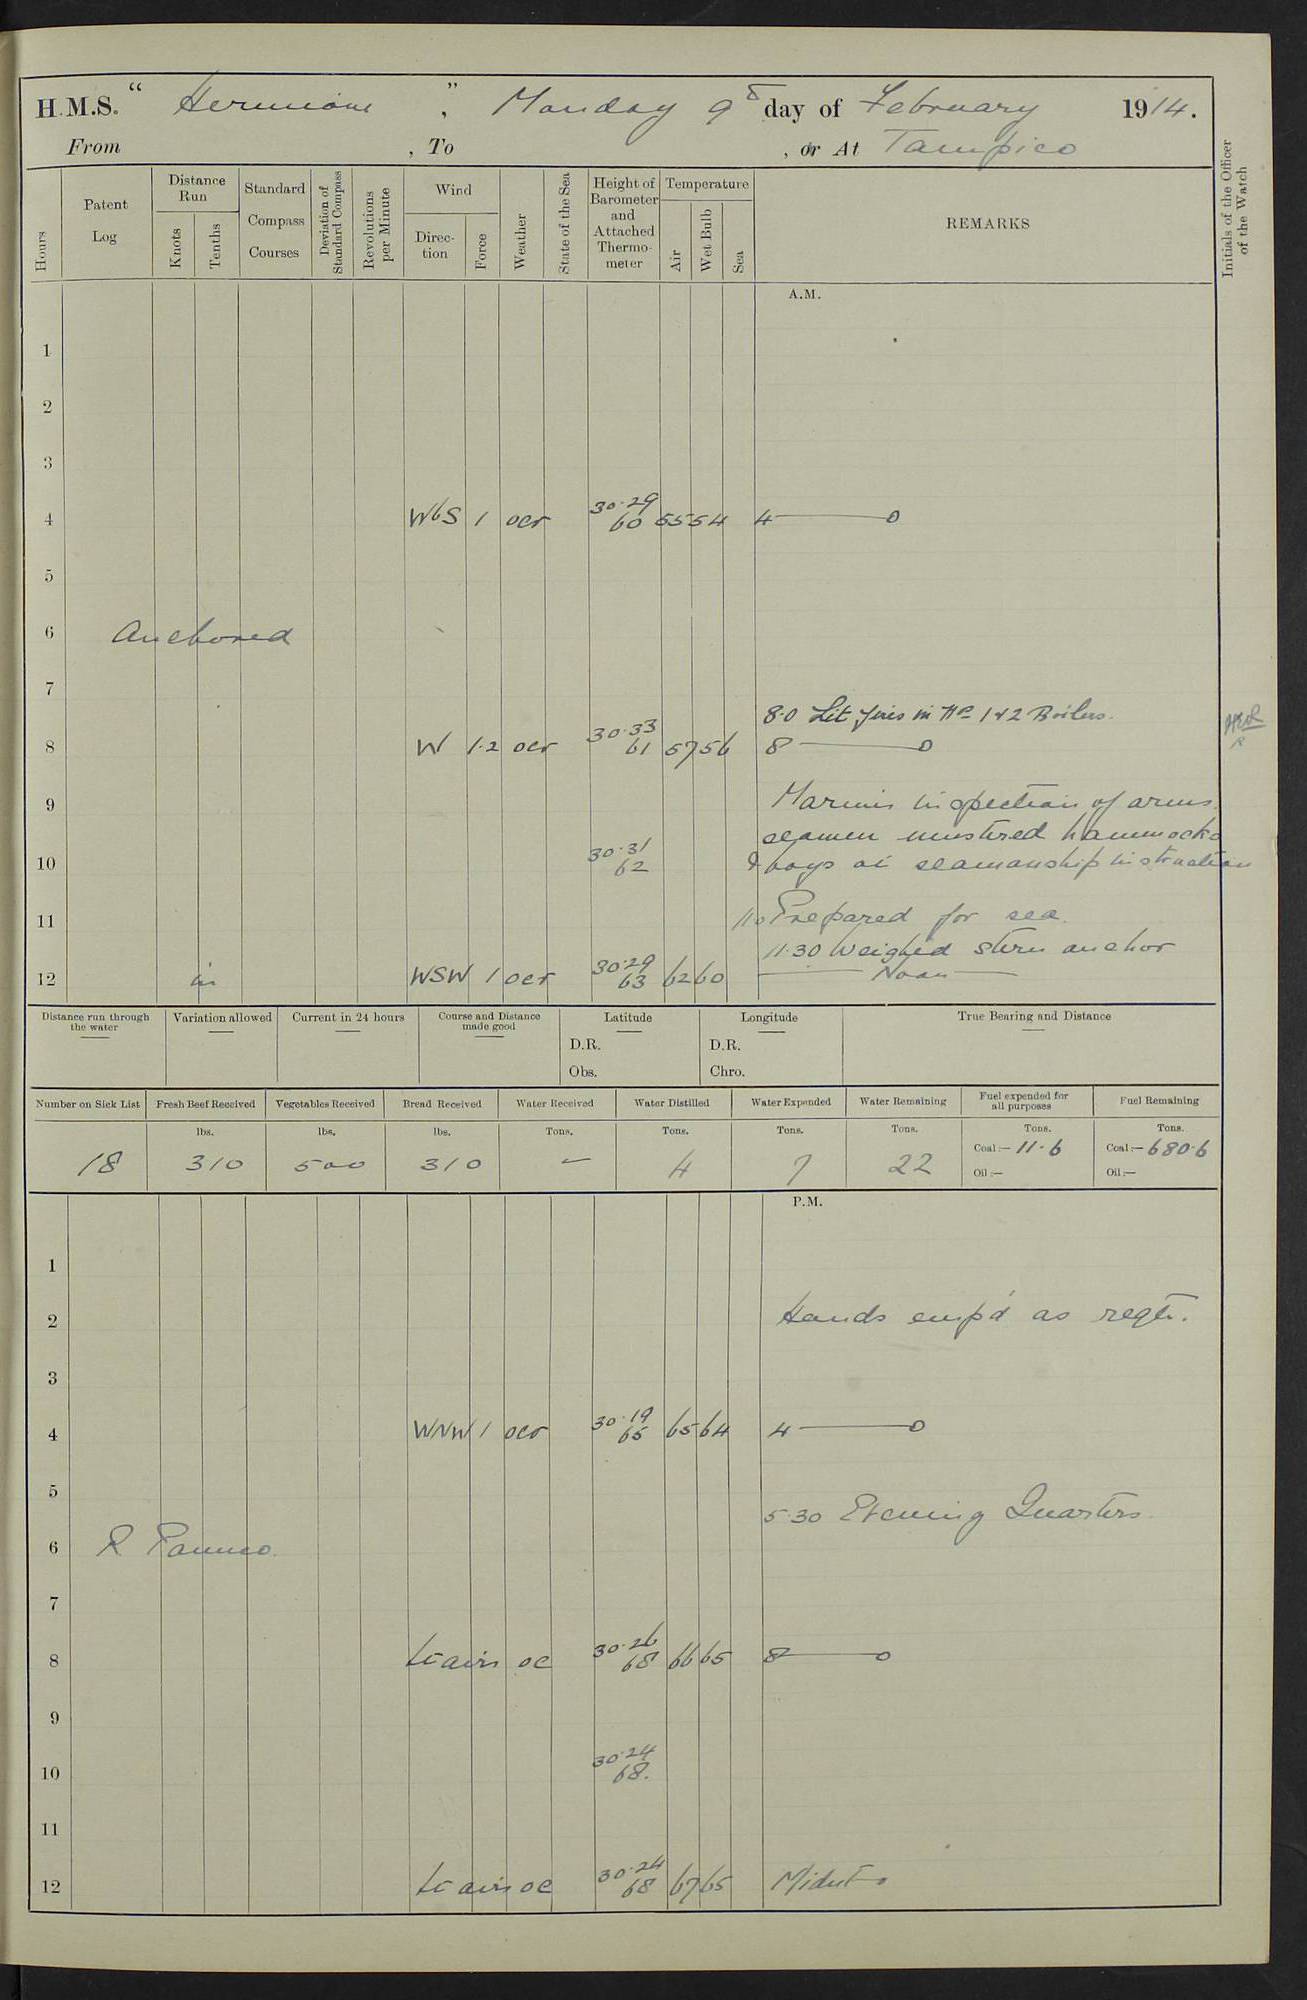 H.M.S. “ Hermione ”, Monday 9th day of February 1914.
From , To , or At Tampico
Hours
Patent Log
Distance Run
Knots
Tenths
Standard Compass Courses
Deviation of Standard Compass
Revolutions per Minute
Wind
Direction
Force
Weather
State of the Sea
Height of Barometer and Attached Thermometer
Temperature
Air
Wet Bulb
Sea
REMARKS
Initials of the Officer of the Watch
A.M.
1
2
3
4 WbS 1 ocr 30.29 60 55 54 4 ——— 0
5
6 Anchored
7
8.0 Lit fires in Nos 1 & 2 Boilers.
8 W 1.2 ocr 30.33 61 57 56 8 ——— 0
9 Marines inspection of arms.
seamen mustered hammocks
10 30.31 62 & boys at seamanship instruction
11 11.0 Prepared for sea.
11.30 Weighed stern anchor
12 in WSW 1 ocr 30.29 63 62 60 —— Noon ——
Distance run through the water
Variation allowed
Current in 24 hours
Course and Distance made good
Latitude
D.R.
Obs.
Longitude
D.R.
Chro.
True Bearing and Distance
Number on Sick List
Fresh Beef Received
Vegetables Received
Bread Received
Water Received
Water Distilled
Water Expended
Water Remaining
Fuel expended for all purposes
Fuel Remaining
lbs. lbs. lbs. Tons. Tons. Tons. Tons. Tons. Tons.
18 310 500 310 — 4 7 22 Coal:— 11.6 Coal:— 680.6
Oil:— Oil:—
P.M.
1
2 Hands emp'd as reqte.
3
4 WNW 1 ocr 30.19 65 65 64 4 ——— 0
5
5.30 Evening Quarters
6 R Panuco.
7
8 Lt airs oc 30.26 68 66 65 8 ——— 0
9
10 30.24 68.
11
12 Lt airs oc 30.24 68 67 65 Midnt